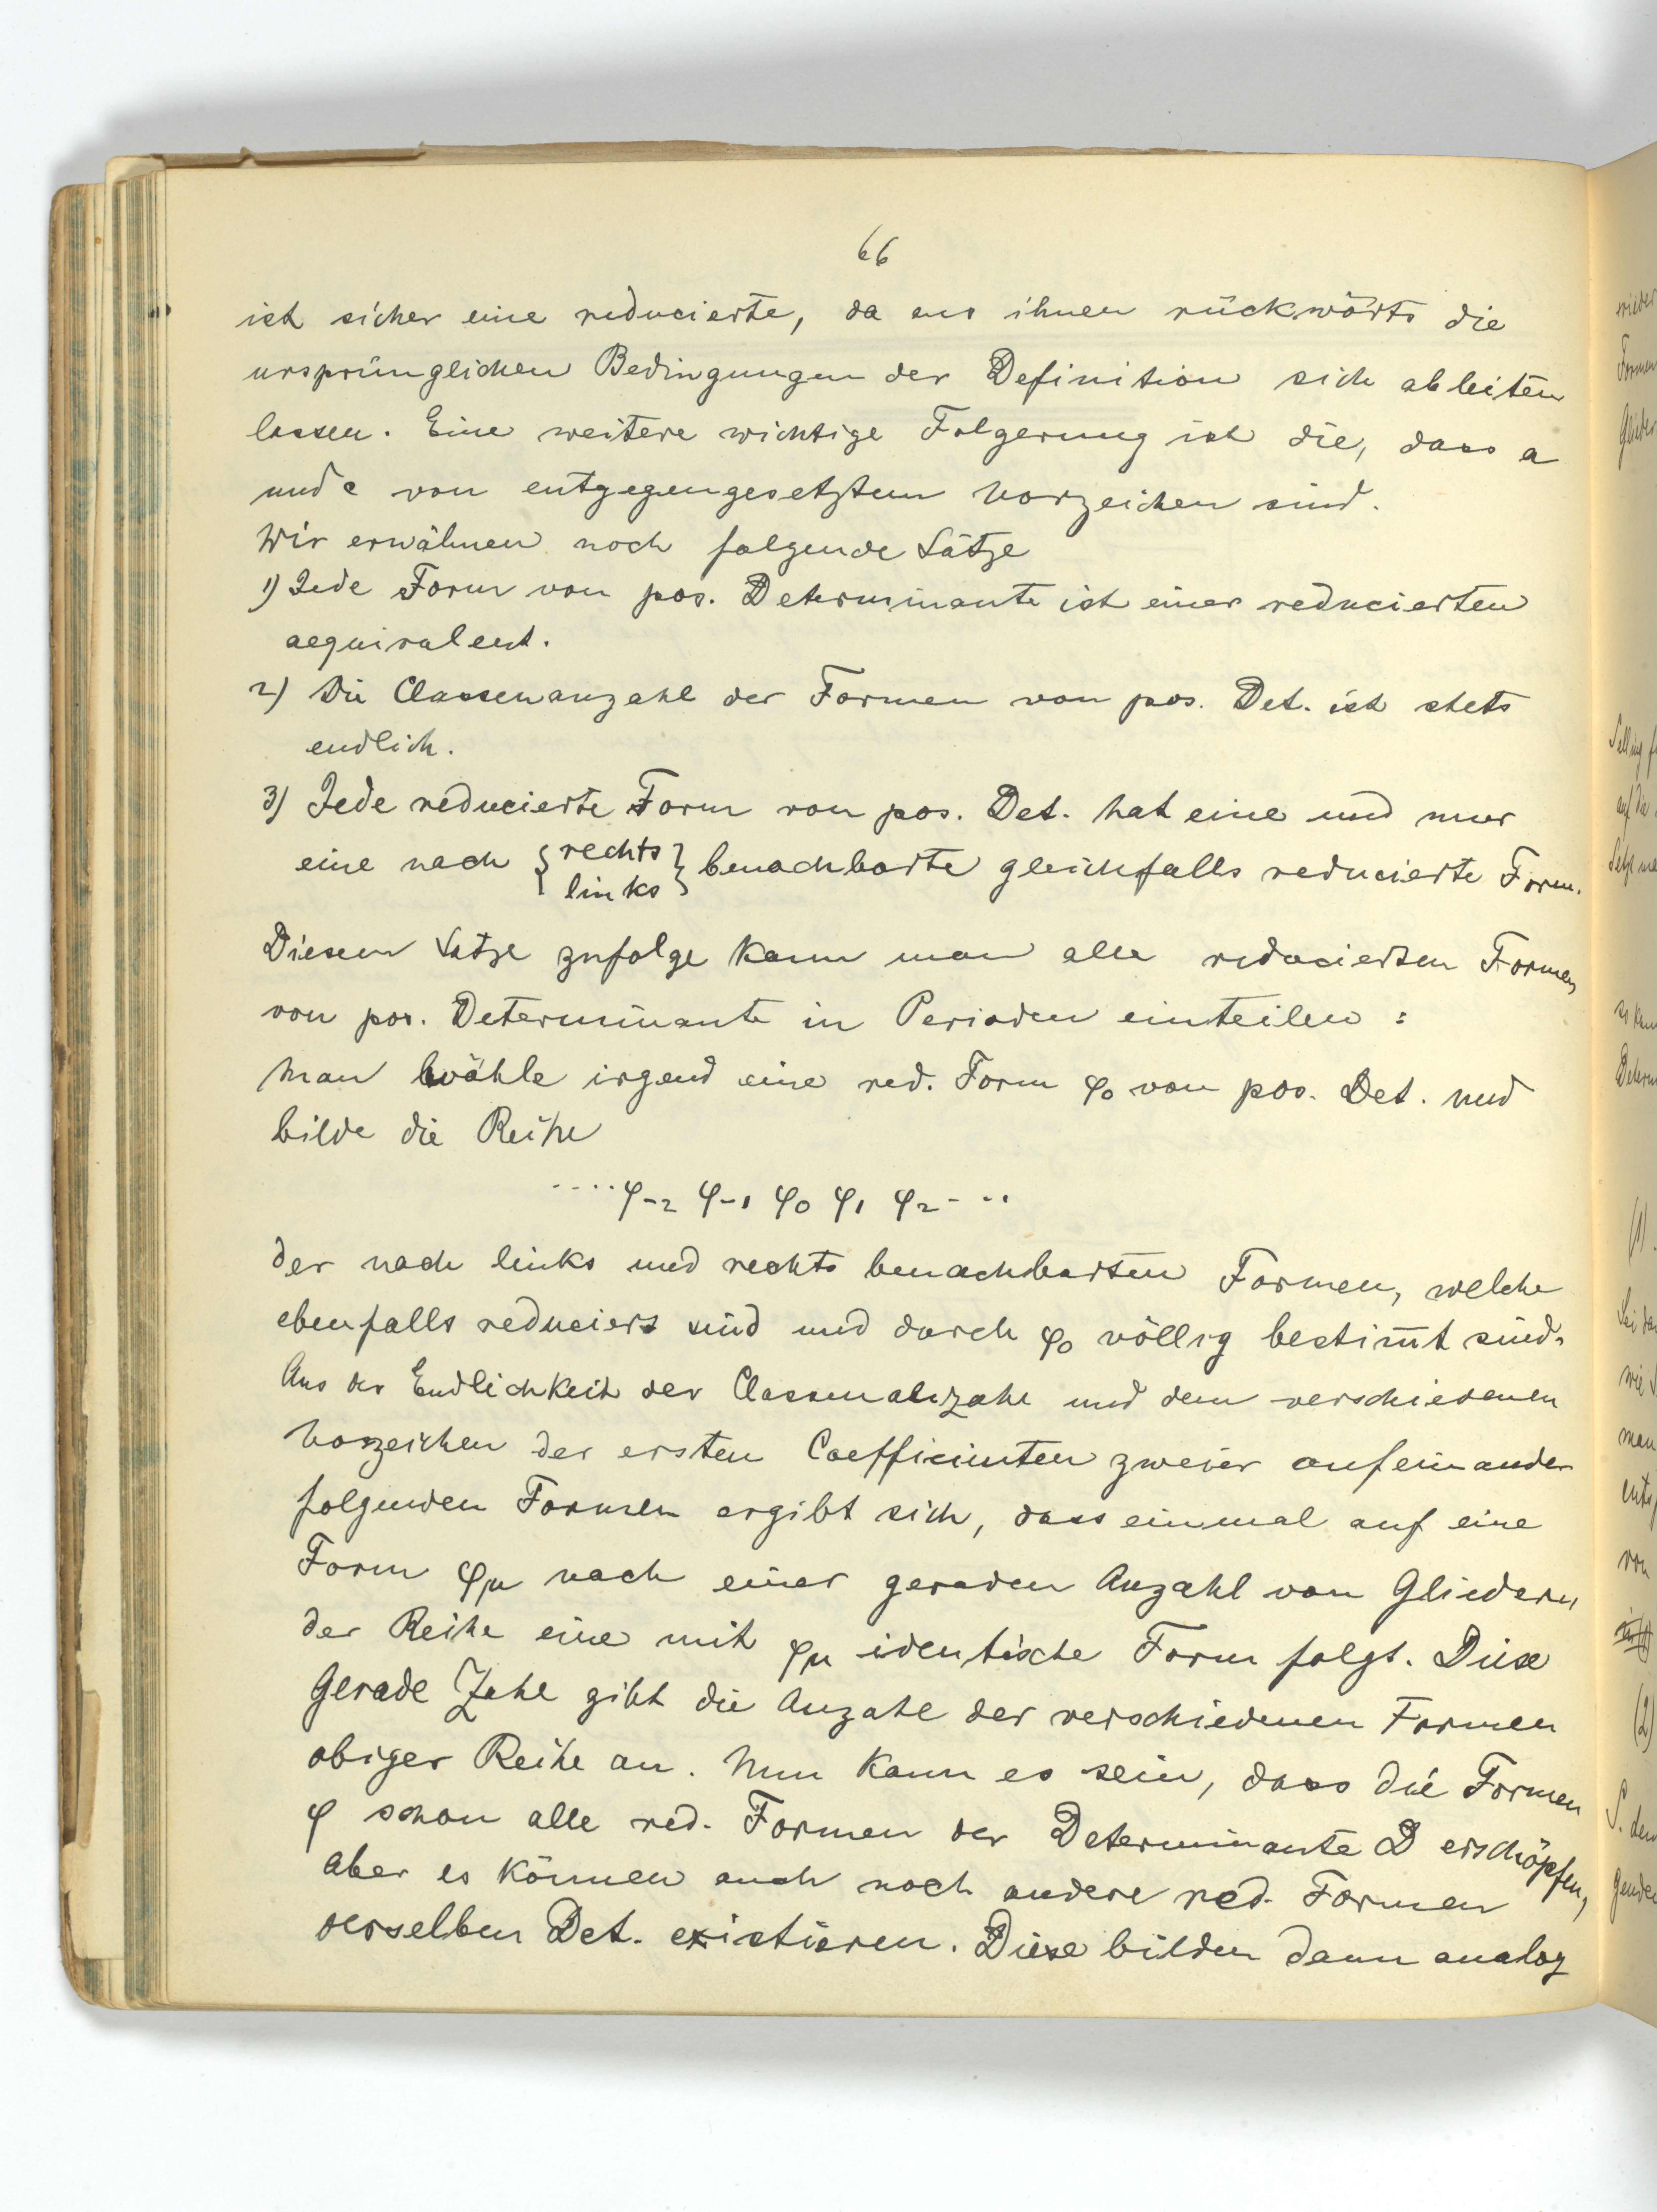 66
ist sicher eine reducierte, da aus ihnen rückwärts die
ursprünglichen Bedingungen der Definition sich ableiten
lassen. Eine weitere wichtige Folgerung ist die, dass a
und c von entgegengesetztem Vorzeichen sind.
Wir erwähnen noch folgende Sätze
1) Jede Form von pos. Determinante ist einer reducierten
aequivalent.
2) Die Classenanzahl der Formen von pos. Det. ist stets
endlich.
3) Jede reducierte Form von pos. Det. hat eine und nur
eine nach { rechts
links } benachbarte gleichfalls reducierte Form.
Diesem Satze zufolge kann man alle reducierten Formen
von pos. Determinante in Perioden einteilen :
Man wähle irgend eine red. Form φ₀ von pos. Det. und
bilde die Reihe
.... φ₋₂ φ₋₁ φ₀ φ₁ φ₂ - ..
der nach links und rechts benachbarten Formen, welche
ebenfalls reduciert sind und durch φ₀ völlig bestim̅t sind.
Aus der Endlichkeit der Classenanzahl und dem verschiedenen
Vorzeichen der ersten Coefficienten zweier aufeinander
folgenden Formen ergibt sich, dass einmal auf eine
Form φμ nach einer geraden Anzahl von Gliedern
der Reihe eine mit φμ identische Form folgt. Diese
Gerade Zahl gibt die Anzahl der verschiedenen Formen
obiger Reihe an. Nun kann es sein, dass die Formen
φ schon alle red. Formen der Determinante D erschöpfen,
aber es können auch noch andere red. Formen
derselben Det. existieren. Diese bilden dann analog
wieder
Formen
Glieder
Selling
auf die
(1)
wie
man
von
(2)
S. dem